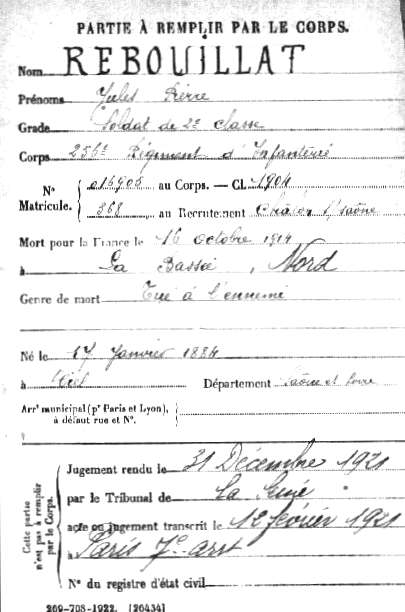 PARTIE À REMPLIR PAR LE CORPS.
Nom REBOUILLAT
Prénoms Jules Pierre
Grade Soldat de 2e classe
Corps 256e Régiment d'Infanterie
N° Matricule. { 016908 au Corps. — Cl. 1904
368 au Recrutement Châlon s/Saône
Mort pour la France le 16 octobre 1914
à La Bassée, Nord
Genre de mort Tué à l'ennemi
Né le 17 Janvier 1884
à Département Saône et Loire
Arrt municipal (pr Paris et Lyon), à défaut rue et N°.
Cette partie n'est pas à remplir par le Corps.
Jugement rendu le 31 Décembre 1921
par le Tribunal de La Seine
acte ou jugement transcrit le 12 février 1921
à Paris 7e arrt
N° du registre d'état civil
269-708-1922. [26434]